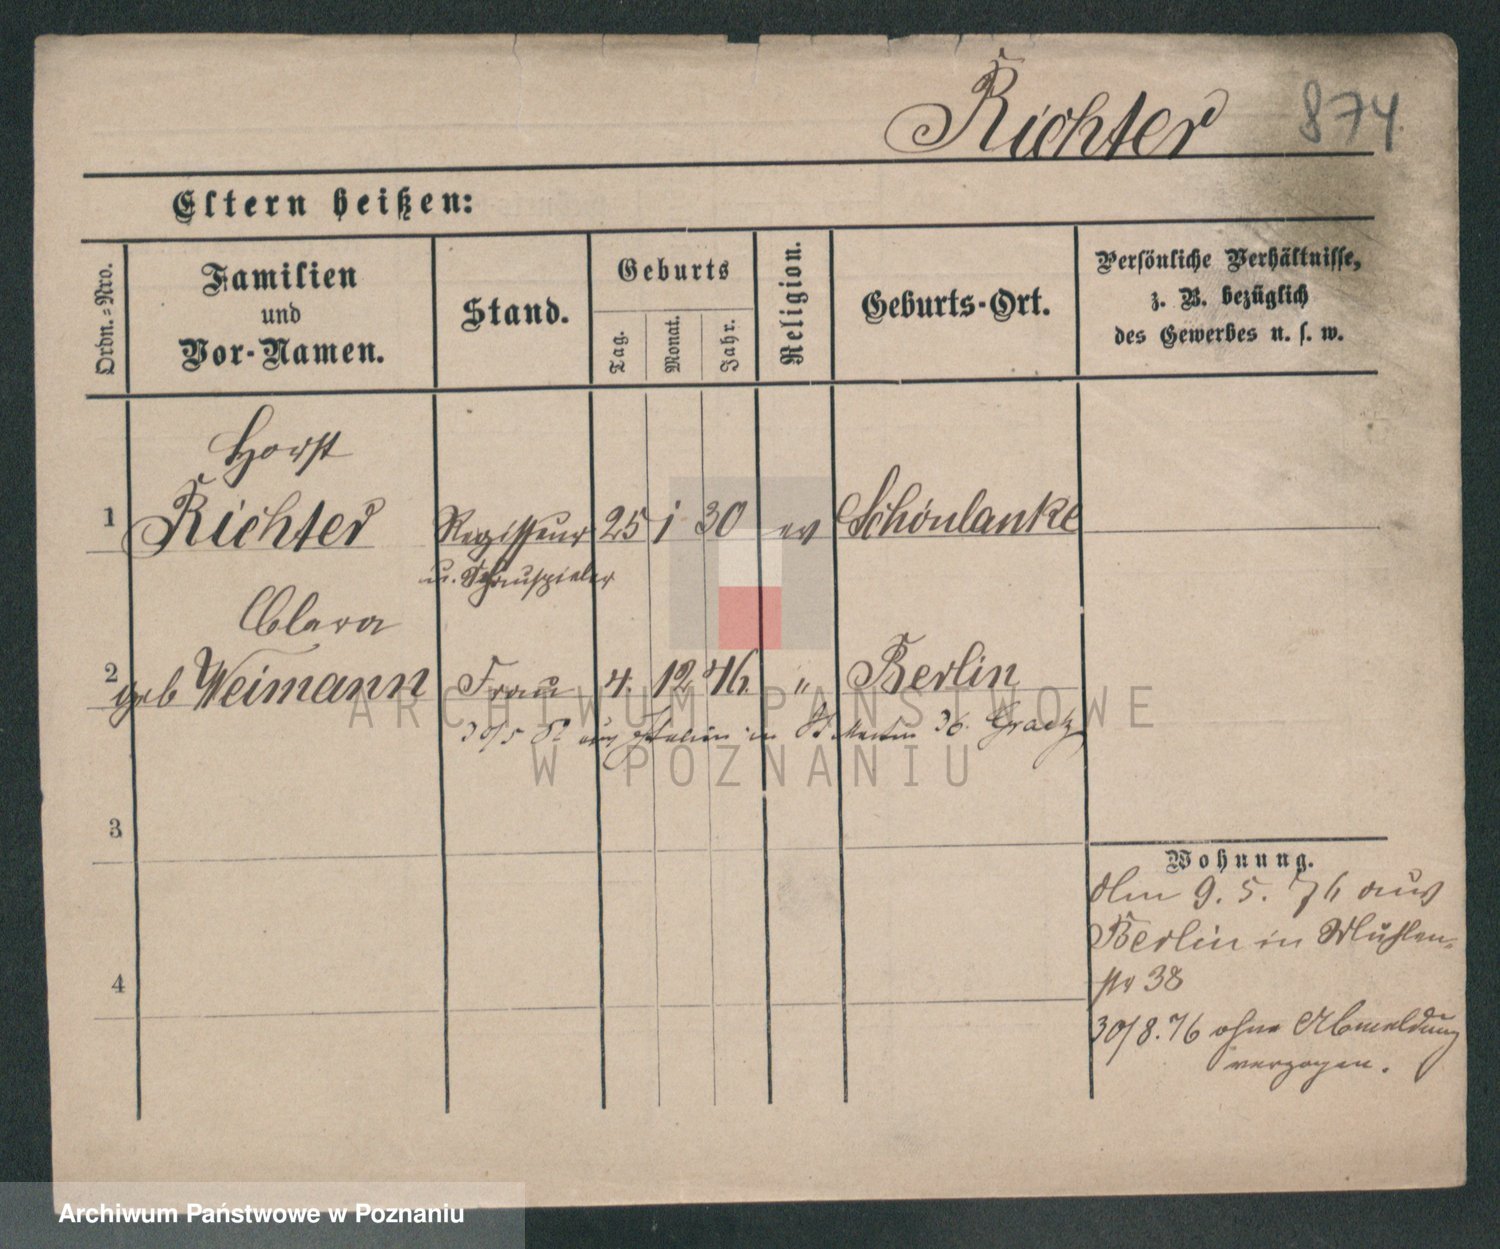 Richter 874
Eltern heißen:
Ordn.-Nro.
Familien
und
Vor-Namen.
Stand.
Geburts
Tag.
Monat.
Jahr.
Religion.
Geburts-Ort.
Persönliche Verhältnisse,
z. B. bezüglich
des Gewerbes u. s. w.
Horst
1 Richter Regisseur 25 1 30 ev Schönlanke
u. Schauspieler
Clara
2 geb Weimann Frau 4. 12 46. " Berlin
30/5 in St Martin 36. Graetz
3
4
Wohnung.
Am 9. 5. 76 aus
Berlin in Mühlen-
str 38
30/8. 76 ohne Abmeldung
verzogen.
ARCHIWUM PAŃSTWOWE
W POZNANIU
Archiwum Państwowe w Poznaniu